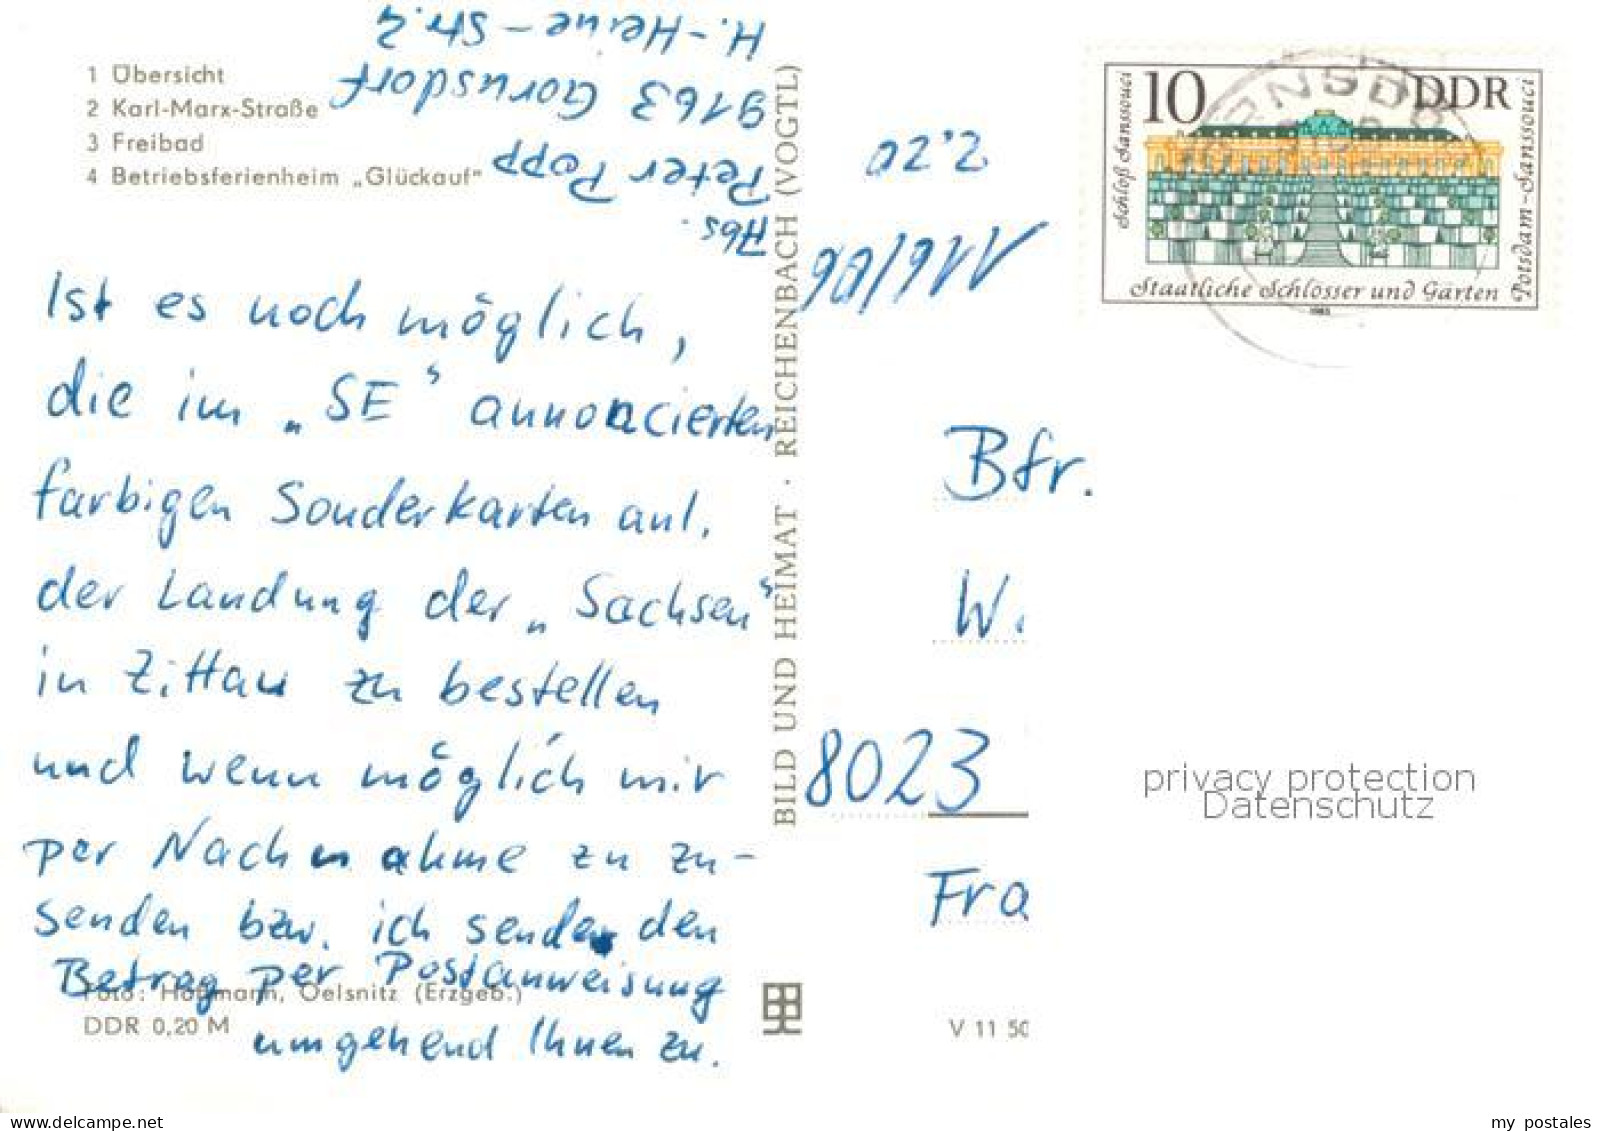 1 Übersicht
2 Karl-Marx-Straße
3 Freibad
4 Betriebsferienheim „Glückauf"
Abs.
Peter Popp
9163 Gornsdorf
H.-Heine-Str. 2
Ist es noch möglich,
die im „SE" annoncierten
farbigen Sonderkarten anl.
der Landung der „Sachsen"
in Zittau zu bestellen
und wenn möglich mir
per Nachnahme zu zu-
senden bzw. ich sende den
Betrag per Postanweisung
umgehend Ihnen zu.
Foto: Hoffmann, Oelsnitz (Erzgeb.)
DDR 0,20 M
BILD UND HEIMAT · REICHENBACH (VOGTL)
V 11 50
2,20
116/06
10
DDR
Schloß Sanssouci
Potsdam-Sanssouci
Staatliche Schlösser und Gärten
1983
Bfr.
W.
8023
Fra
privacy protection
Datenschutz
www.delcampe.net
my_postales